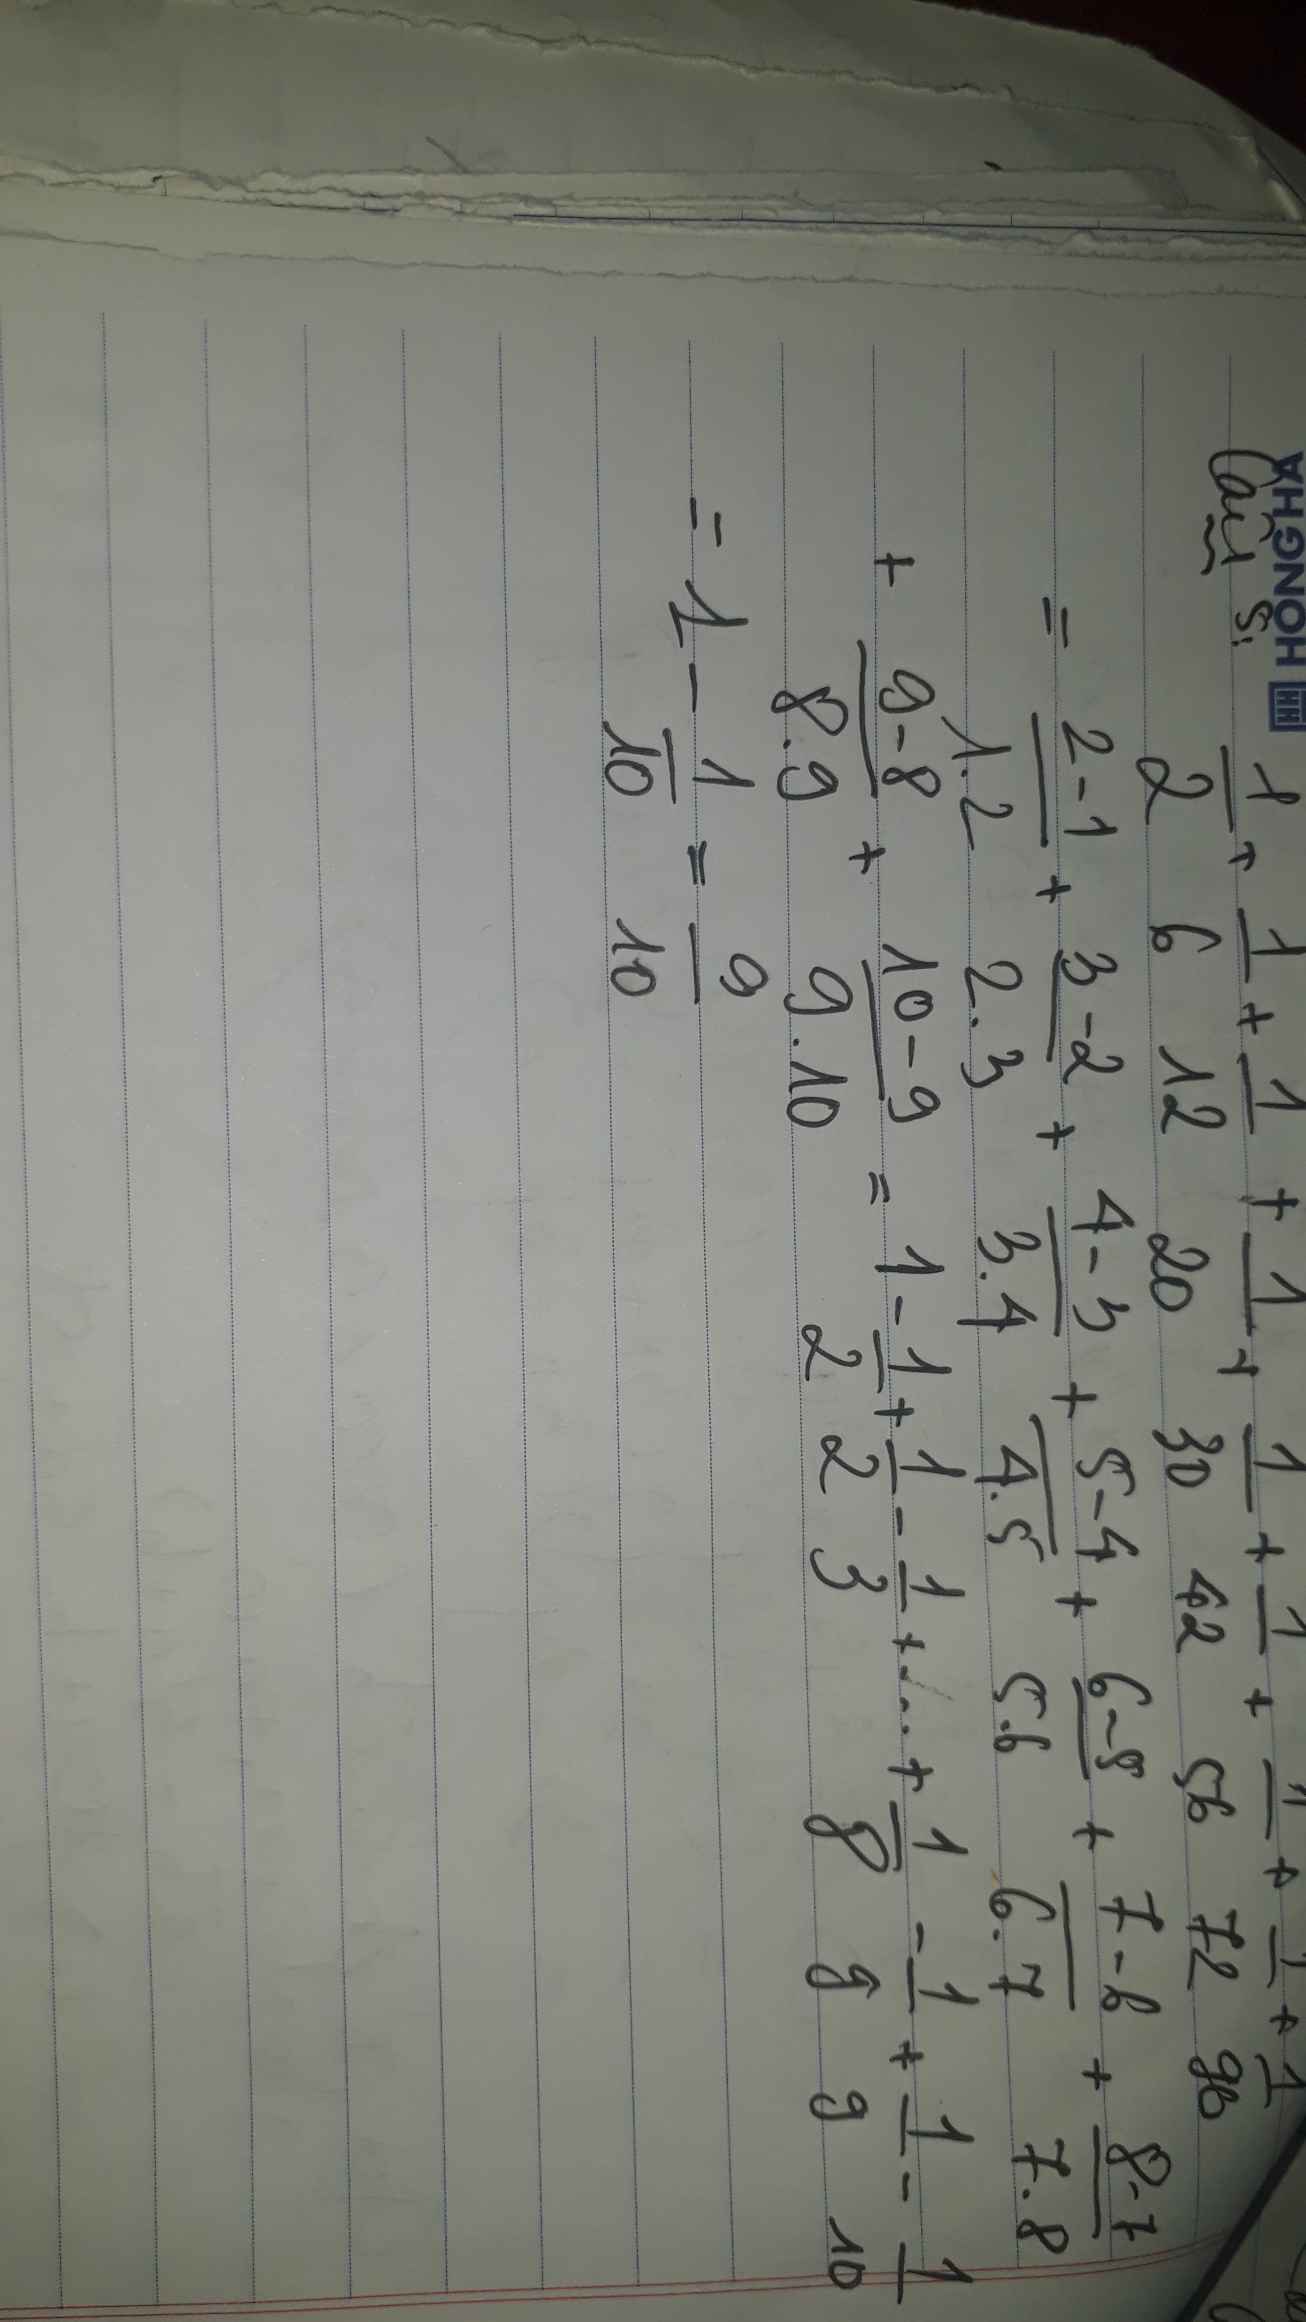 HONGHA HH
Câu 5: 1/2 + 1/6 + 1/12 + 1/20 + 1/30 + 1/42 + 1/56 + 1/72 + 1/90
= 2-1/1.2 + 3-2/2.3 + 4-3/3.4 + 5-4/4.5 + 6-5/5.6 + 7-6/6.7 + 8-7/7.8
+ 9-8/8.9 + 10-9/9.10 = 1 - 1/2 + 1/2 - 1/3 + ... + 1/8 - 1/9 + 1/9 - 1/10
= 1 - 1/10 = 9/10